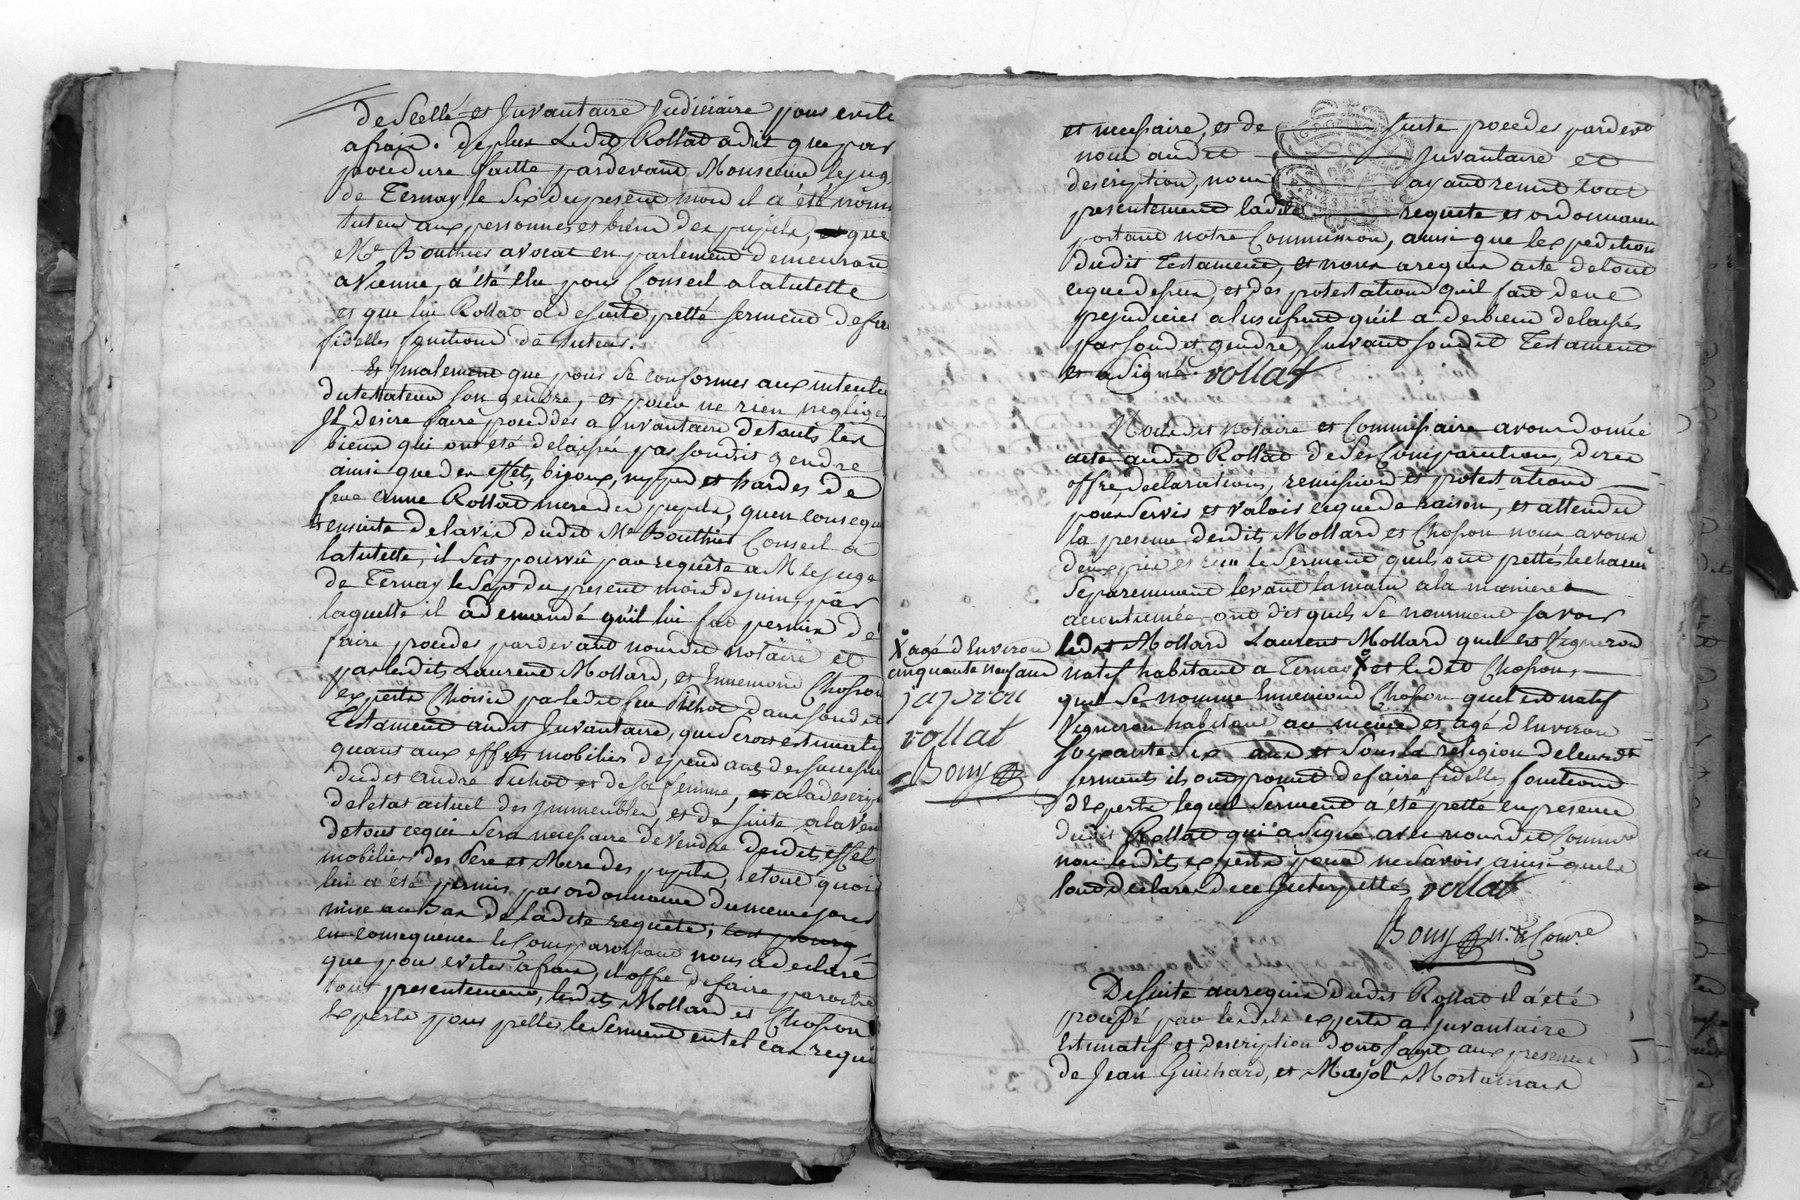 de Scellé et Juvantaire Judiciaire pour evite
afraix. de plux Ledit Rollat adit que par
procedure faitte pardevant Monsieur le juge
de Ternay le Six du present moix il a été nom
tuteur aux personnes et biens des pupils, que
Me Bouthier avocat en parlement demeurant
a Vienne, a été élu pour Conseil a latutelle
et que lui Rollat a desuite pretté serment defai
fidelles fonctions de tuteur.
Et finalement que pour Se conformer aux intentio
dutestateur son gendre, et pour ne rien negliger
Il desire faire procedder a Juvantaire detouts les
biens qui ont été delaissés par sondit gendre
ainsi que des effets, bijoux, nippes et hardes de
feue anne Rollat mere des pupils, qu'en conseque
ensuite de lavis dudit Me Bouthier Conseil a
latutelle, il sest pourvû par requête a M le juge
de Ternay le Sept du present moix de juin, par
laquelle il a demandé qu'il lui fut permis de
faire proceder pardevant nousdit notaire et
par lesdits Laurent Mollard, et Ennemond Chosson
experts Choisis par ledit feu Pichot dans sondit
Testament audit Juvantaire, qui Seroit estimatif
quant aux effets mobiliers dependants des successions
dudit andré Pichot et de sa femme, et a la descrip
de letat actuel des Jmmeubles, et de suite a la Ven
detout cequi Sera necessaire de vendre desdits effets
mobiliers des Pere et Mere des pupils, letout quoi
lui a été permis par ordonnance du meme jour
mise au bas de ladite requête,
en consequence le Comparoissant nous a declaré
que pour eviter a fraix, il offre de faire paroitre
tout presentement, lesdits Mollard et Chosson
Experts pour pretter le Serment en tel cas requis
et necessaire, et de suite proceder pardevt
nous audit Juvantaire et
description, nous ayant remit tout
presentement ladite requete et ordonnance
portant notre Commission, ainsi que lexpedition
dudit Testament, et nous a requis acte de tout
ceque dessus, et des protestations qu'il fait de ne
prejudicier a lusufruit qu'il a des biens delaissés
par sondit gendre, suivant sondit Testament
et a Signé vollat
Nousdit notaire et Commissaire avons donné
acte audit Rollat de Ses Comparution, dires
offre, declarations, remissions et protestations
pour Servir et valoir ceque de raison, et attendu
la presence desdits Mollard et Chosson nous avons
deux pris et reçu le Serment quils ont prettés lechacun
Separemment levant la main a la maniere
accoutumée, ont dit quils se nomment savoir
ledit Mollard Laurent Mollard quil est Vigneron
natif habitant a Ternay X et ledit Chosson,
quil se nomme Ennemond Chosson quil est natif
Vigneron habitant au meme et agé d'Environ
soixante six ans et Sous la religion de leursdt
serments ils ont promit de faire fidelles fonctions
dExperts lequel Serment a été pretté en presence
dudit Rollat qui a Signé avec nousdit Commre
non lesdits experts pour ne Savoir ainsi quils
lont declarés de ce Jnterpellés vollat
Bouy nre & Comre.
X agé d'Environ
cinquante neuf ans
japrou
vollat
Bouy
De suite au requis dudit Rollat il a été
procedé par lesdits experts a Juvantaire
Estimatif et description dont sagit aux presences
de Jean Guichard, et Mayol Mortamais